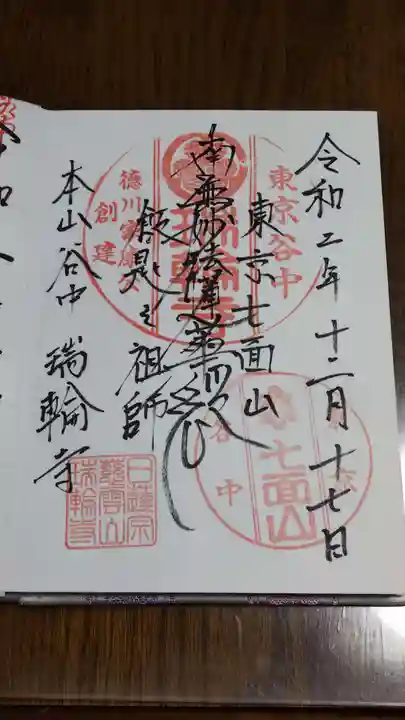 令和二年十二月十七日
東京七面山
南無妙法蓮華経
飯匙之祖師
本山谷中 瑞輪寺
東京谷中
瑞輪寺
徳川家康公
創建
七面山
谷中
日蓮宗
慈雲山
瑞輪寺